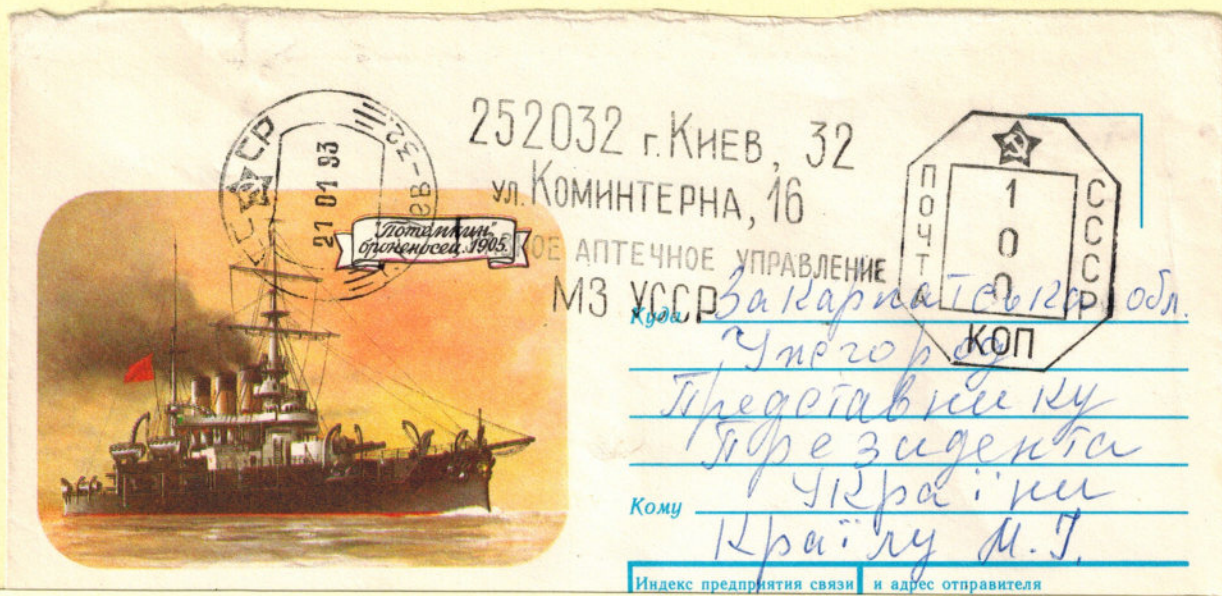 252032 г. Киев, 32
ул. Коминтерна, 16
АПТЕЧНОЕ УПРАВЛЕНИЕ
МЗ УССР
СССР
21 01 93
32
ПОЧТА
СССР
100
КОП
"Потемкин"
броненосец. 1905.
Куда Закарпатська обл.
Ужгород
Представнику
Президента
України
Кому
Країлу М.І.
Индекс предприятия связи и адрес отправителя